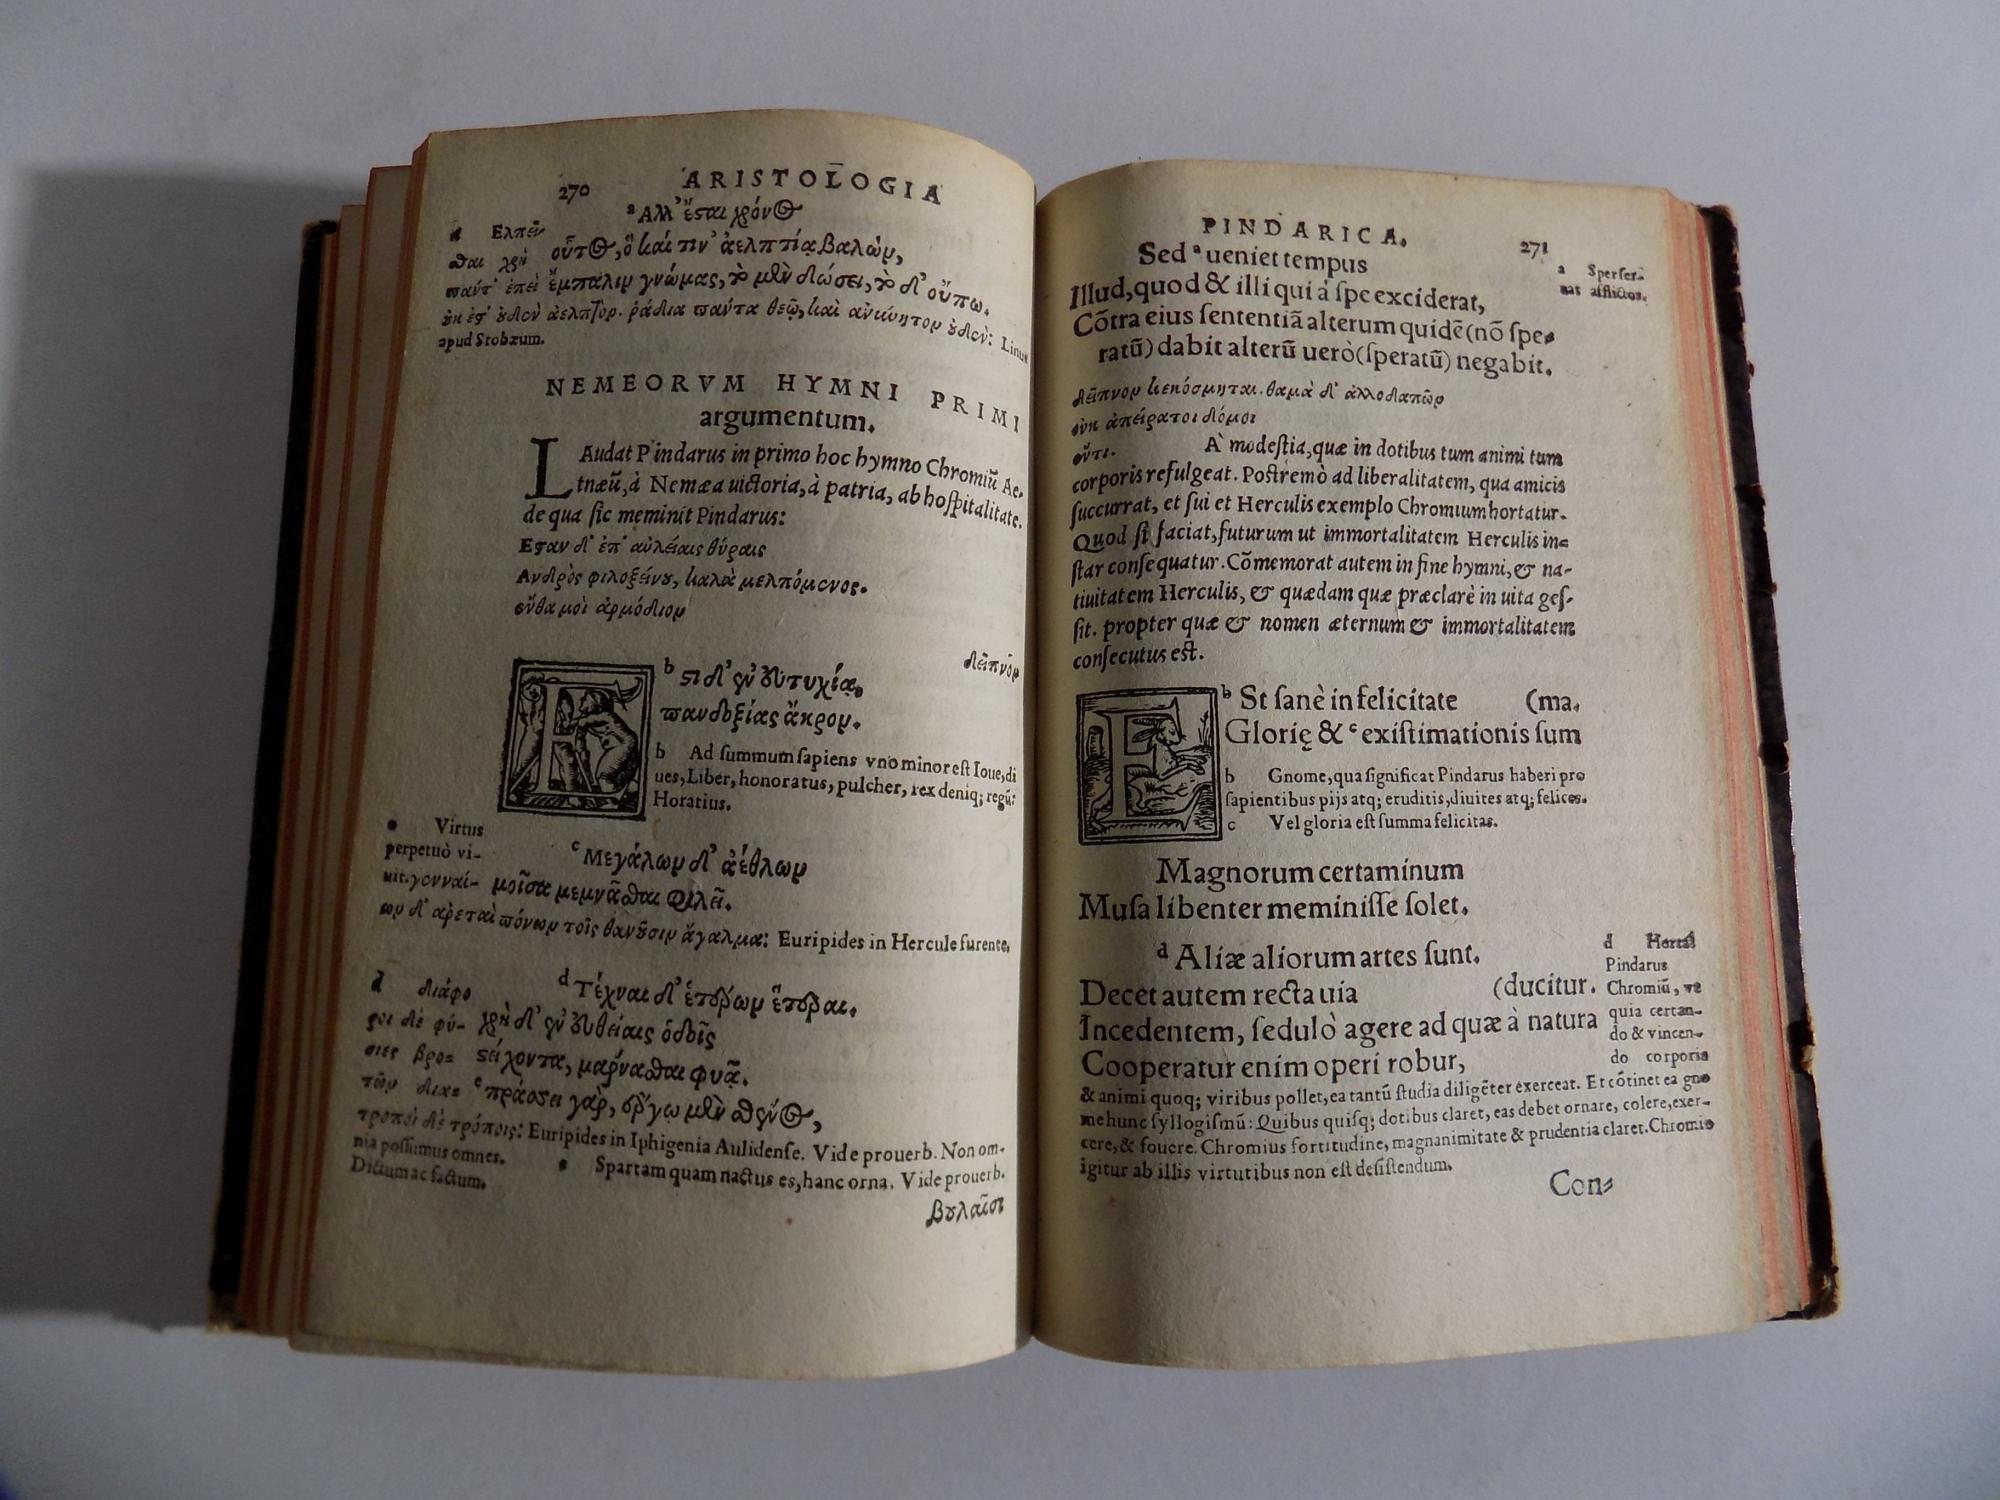 270 ARISTOLOGIA
ᵃ Αλλ' ἔσται χρόνος
οὗτος, ὃ καί τιν' ἀελπτίᾳ βαλὼν,
ἔμπαλιν γνώμας, τὸ μὲν δώσει, τὸ δ' οὔπω.
a Ελπε-
σθαι χρὴ
παντ' ἐπεὶ
ὐκ ἐσ' ὐδὲν ἀελπτον. ῥάδια παντα θεῷ, καὶ ἀνήνυτον ὐδέν: Linus
apud Stobæum.
NEMEORVM HYMNI PRIMI
argumentum.
LAudat Pindarus in primo hoc hymno Chromiũ Ae-
tnæũ, à Nemæa uictoria, à patria, ab hospitalitate.
de qua sic meminit Pindarus:
Εσαν δ' ἐπ' αὐλείαις θύραις
Ανδρὸς φιλοξείνου, καλὰ μελπόμενος.
ἔνθα μοὶ ἁρμόδιον
δεῖπνον
Eᵇ στι δ' ἐν εὐτυχίᾳ,
πανδοξίας ἄκρον.
b Ad summum sapiens vno minor est Ioue, di
ues, Liber, honoratus, pulcher, rex deniq; regũ:
Horatius.
ᶜ Μεγάλων δ' ἀέθλων
μοῖσα μεμνᾶσθαι φιλεῖ.
Virtus
perpetuò vi-
uit. γενναί-
ων δ' ἀρεταὶ πόνων τοῖς θανοῦσιν ἄγαλμα: Euripides in Hercule furente.
ᵈ Τέχναι δ' ἑτέρων ἕτεραι.
χρὴ δ' ἐν εὐθείαις ὁδοῖς
στείχοντα, μάρνασθαι φυᾷ.
ᵉ πράσσει γὰρ, ἔργῳ μὲν σθένος,
d διάφο
ροι δὲ φύ-
σεις βρο-
τῶν διά-
τροποι δὲ τρόποις: Euripides in Iphigenia Aulidense. Vide prouerb. Non om-
nia possimus omnes. Spartam quam nactus es, hanc orna. Vide prouerb.
Dictum ac factum.
βουλαῖσι
PINDARICA. 271
Sed ᵃ ueniet tempus
Illud, quod & illi qui à spe exciderat,
Cõtra eius sententiã alterum quidẽ (nõ spe-
ratũ) dabit alterũ uerò (speratũ) negabit.
a Sper fer-
uat afflictos.
δεῖπνον κεκόσμηται. θαμὰ δ' ἀλλοδαπῶν
οὐκ ἀπείρατοι δόμοι
ἐντί. A' modestia, quæ in dotibus tum animi tum
corporis refulgeat. Postremò ad liberalitatem, qua amicis
succurrat, et sui et Herculis exemplo Chromium hortatur.
Quod si faciat, futurum ut immortalitatem Herculis in-
star consequatur. Cõmemorat autem in fine hymni, & na-
tiuitatem Herculis, & quædam quæ præclarè in uita ges-
sit. propter quæ & nomen æternum & immortalitatem
consecutus est.
Eᵇ St sanè in felicitate (ma.
Glorię & ᶜ existimationis sum
b Gnome, qua significat Pindarus haberi pro
sapientibus pijs atq; eruditis, diuites atq; felices.
c Vel gloria est summa felicitas.
Magnorum certaminum
Musa libenter meminisse solet.
ᵈ Aliæ aliorum artes sunt.
Decet autem recta uia (ducitur.
Incedentem, sedulò agere ad quæ à natura
Cooperatur enim operi robur,
d Hortat
Pindarus
Chromiũ, vt
quia certan-
do & vincen-
do corporis
& animi quoq; viribus pollet, ea tantũ studia diligẽter exerceat. Et cõtinet ea gno
me hunc syllogismũ: Quibus quisq; dotibus claret, eas debet ornare, colere, exer-
cere, & fouere. Chromius fortitudine, magnanimitate & prudentia claret. Chromio
igitur ab illis virtutibus non est desistendum.
Con-